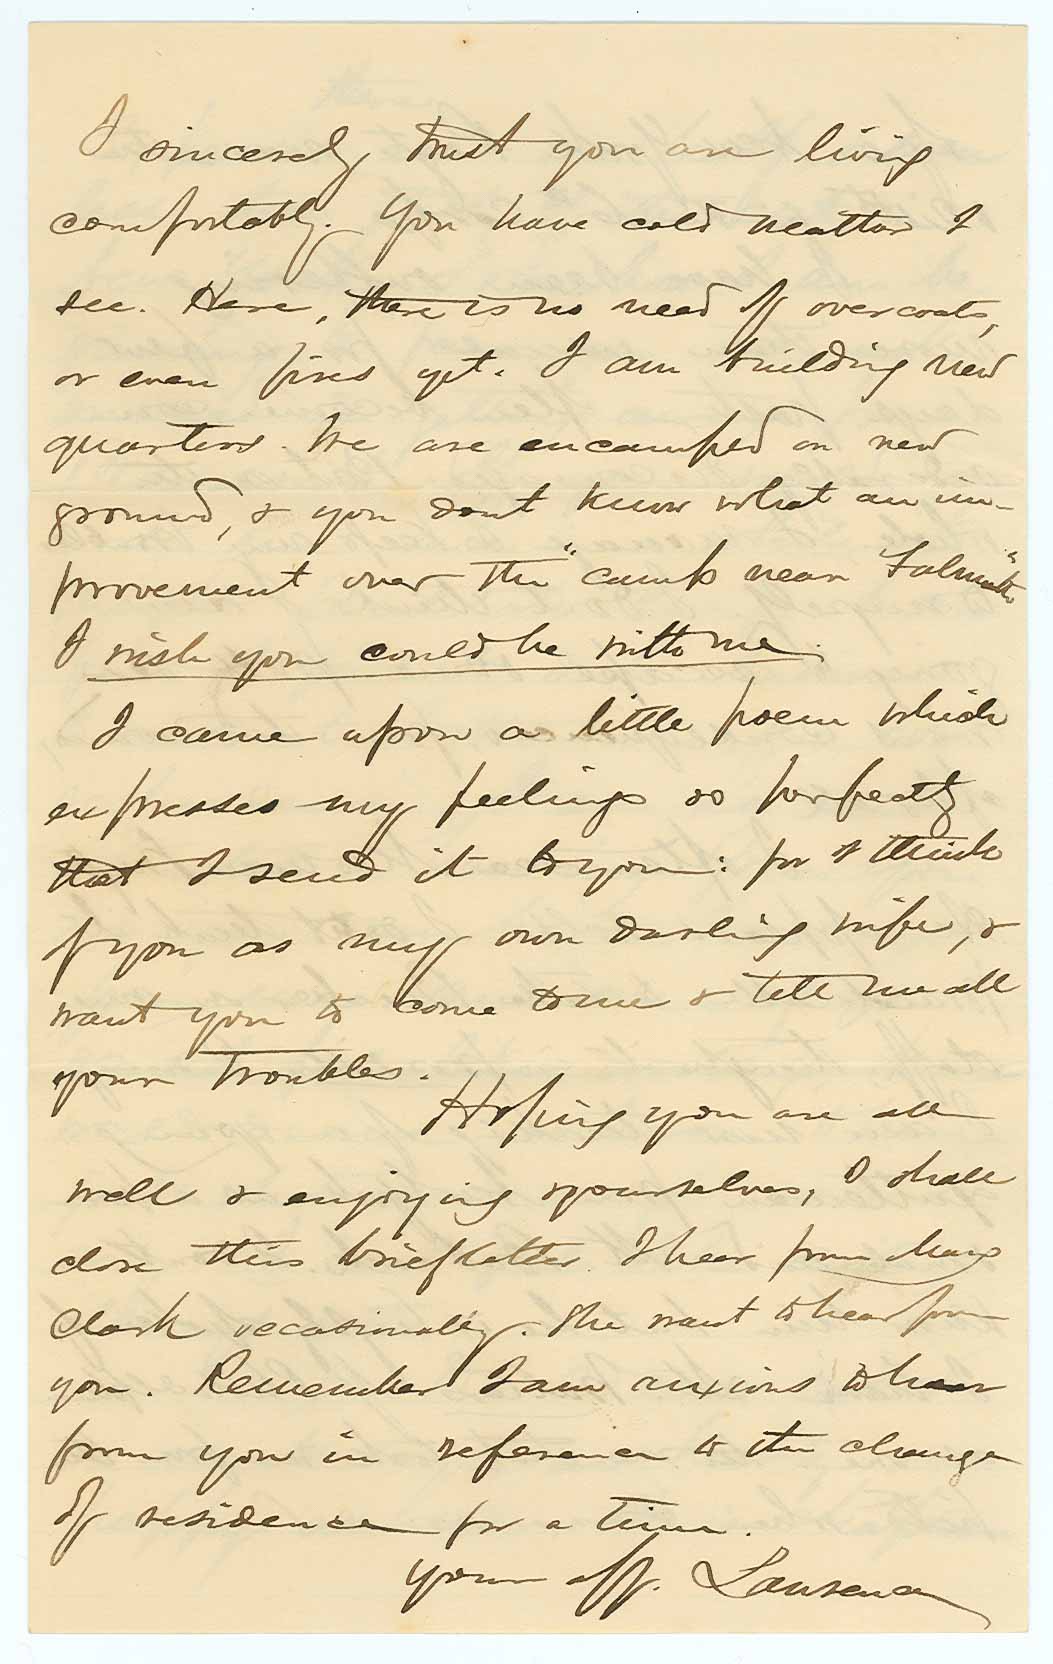 I sincerely trust you are living
comfortably. You have cold weather I
see. Here, there is no need of overcoats,
or even fires yet. I am building new
quarters. We are encamped on new
ground, & you dont know what an im-
provement over the "camp near Falmouth"
I wish you could be with me.
I came upon a little poem which
expresses my feelings so perfectly
that I send it to you: for I think
of you as my own darling wife, &
want you to come to me & tell me all
your troubles.
Hoping you are all
well & enjoying yourselves, I shall
close this brief letter. I hear from
Clark occasionally. She want to hear from
you. Remember I am anxious to hear
from you in reference to the change
of residence for a time.
Your aff. Laurence